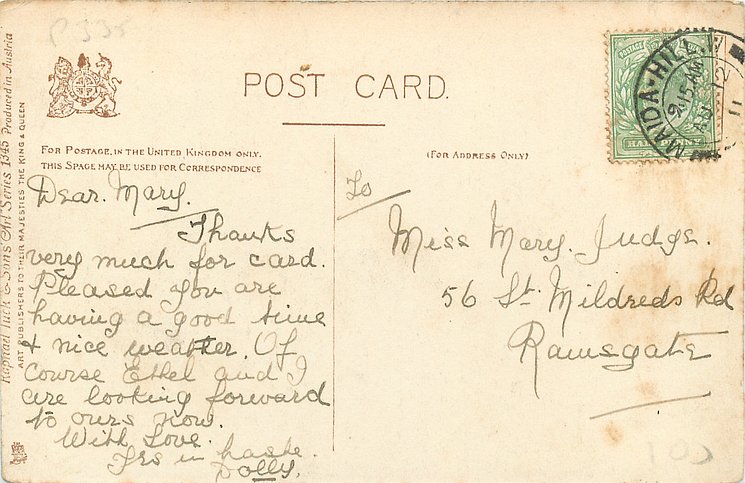 P 335
POST CARD.
FOR POSTAGE IN THE UNITED KINGDOM ONLY.
THIS SPACE MAY BE USED FOR CORRESPONDENCE
(FOR ADDRESS ONLY)
Raphael Tuck & Sons' Art Series 1345 Produced in Austria
ART PUBLISHERS TO THEIR MAJESTIES THE KING & QUEEN
MAIDA-HILL. W
9.15 AM
12
11
POSTAGE
HALF
Dear. Mary.
Thanks
very much for card.
Pleased you are
having a good time
& nice weather. Of
course Ethel and I
are looking forward
to ours now.
With Love.
Yrs in haste.
Dolly.
To
Miss Mary. Judge.
56 St. Mildreds Rd
Ramsgate